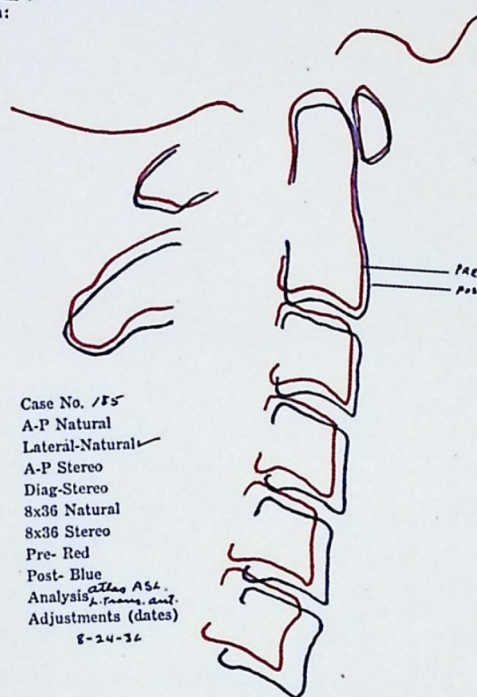 PRE
POS
Case No. 185
A-P Natural
Lateral-Natural ✓
A-P Stereo
Diag-Stereo
8x36 Natural
8x36 Stereo
Pre- Red
Post- Blue
Analysis atlas ASL.
L. Trans. ant.
Adjustments (dates)
8-24-36